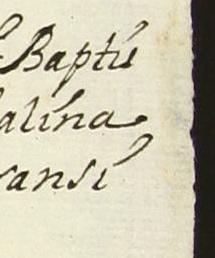 Baptú
alina
ransi